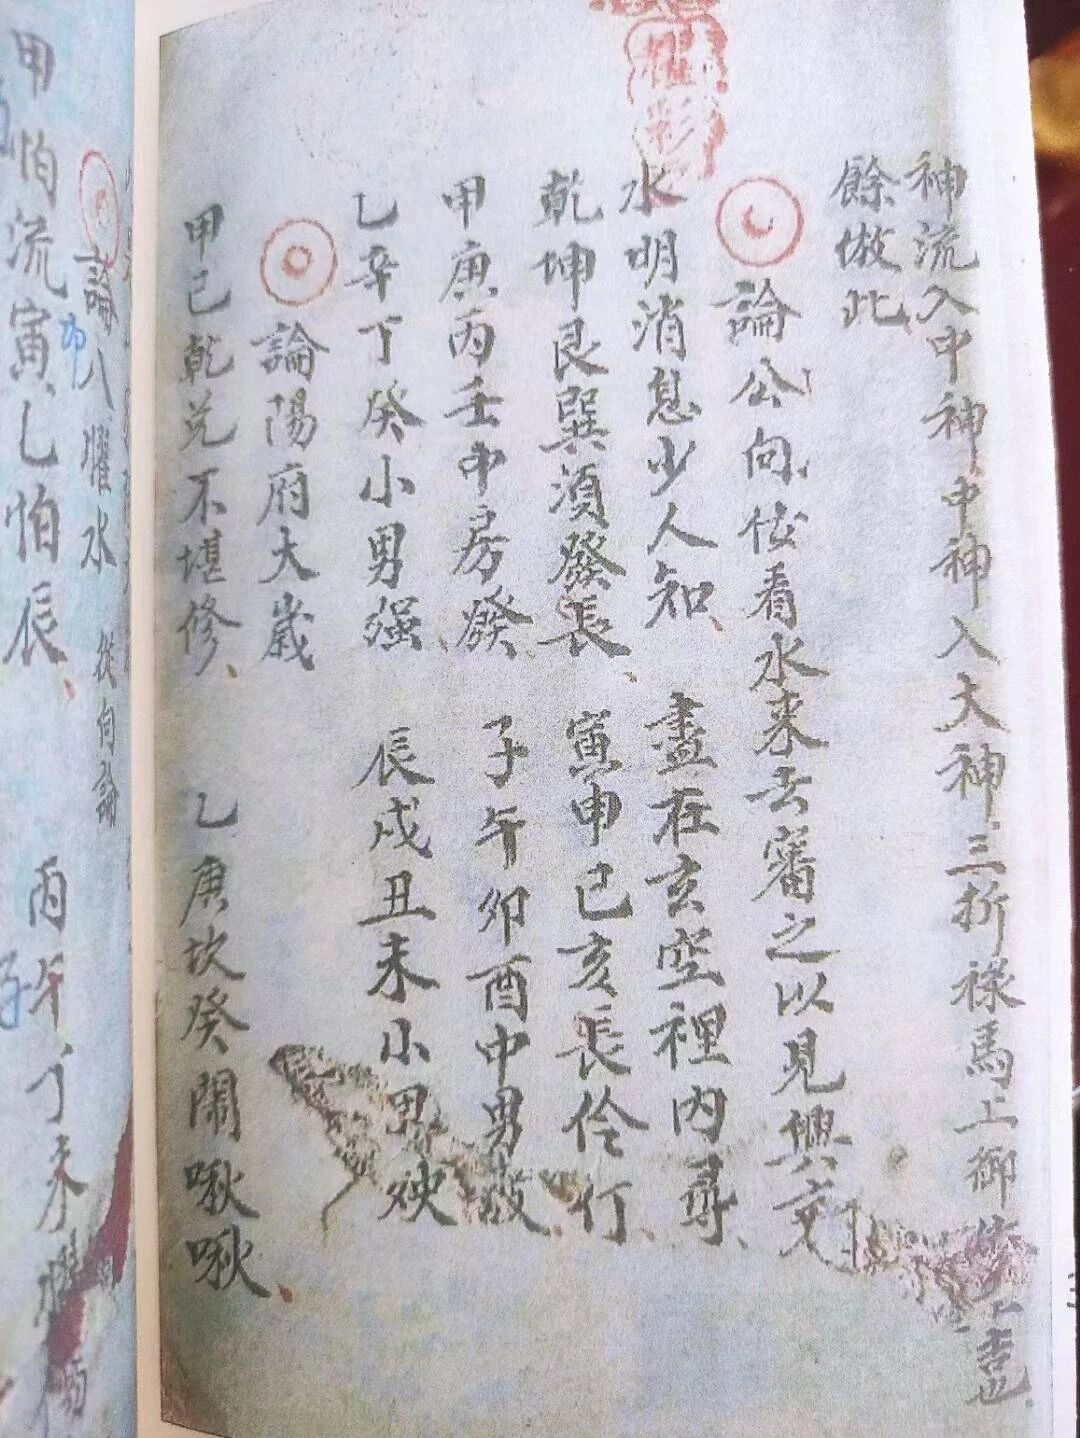 神流入中神中神入大神三折祿馬上御
餘倣此
論公向伩看水來去審之以見興
水明消息少人知 盡在玄空裡内尋
乾坤艮巽須發長 寅申巳亥長伶仃
甲庚丙壬中房發 子午卯酉中男
乙辛丁癸小男强 辰戌丑未小男殃
論陽府大歲
甲己乾兑不堪修 乙庚坎癸閙啾啾
論八曜水 從向論
甲怕流寅乙怕辰 丙午丁未